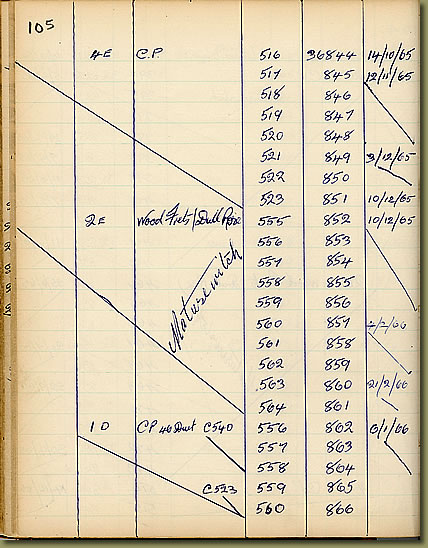 105
4E C.P. 516 36844 14/10/65
517 845 12/11/65
518 846
519 847
520 848
521 849 3/12/65
522 850
523 851 10/12/65
2E Wood Frets/Dull 555 852 10/12/65
556 853
557 854
558 855
559 856
560 857 2/2/66
561 858
562 859
563 860 21/2/66
564 861
1D CP C540 556 862 6/1/66
557 863
558 864
C523 559 865
560 866